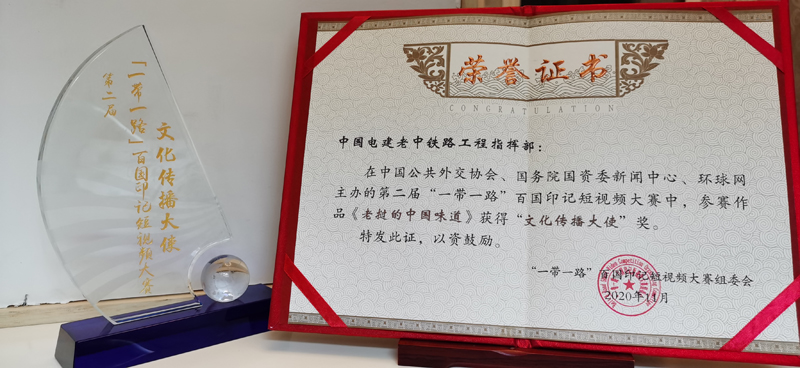 第二届
「一带一路」百国印记短视频大赛
文化传播大使
荣誉证书
CONGRATULATION
中国电建老中铁路工程指挥部：
在中国公共外交协会、国务院国资委新闻中心、环球网
主办的第二届“一带一路”百国印记短视频大赛中，参赛作
品《老挝的中国味道》获得“文化传播大使”奖。
特发此证，以资鼓励。
“一带一路”百国印记短视频大赛组委会
2020年11月